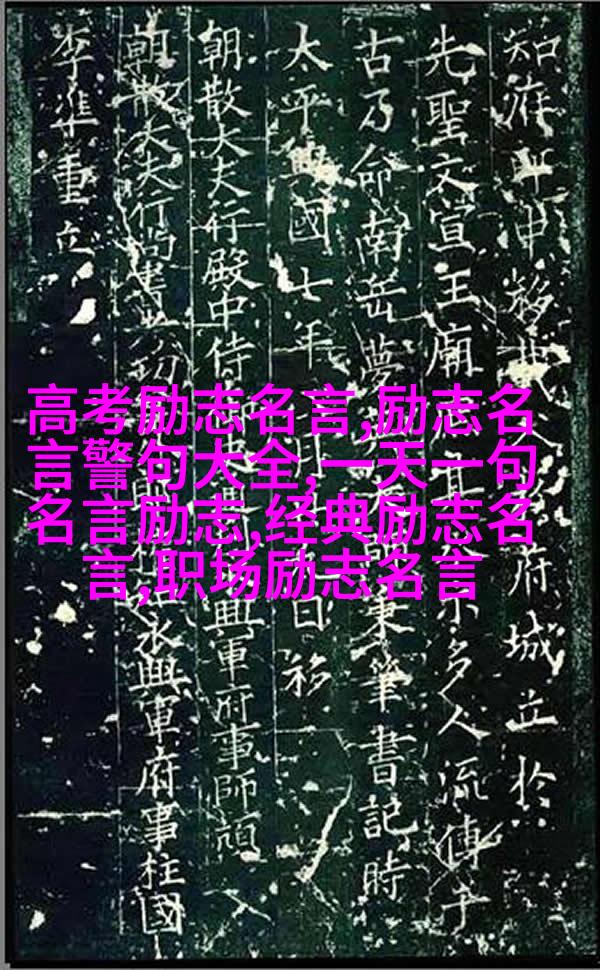 高考励志名言,励志名
言警句大全,一天一句
名言励志,经典励志名
言,职场励志名言
知府 移 府城立於
先聖文宣王廟 示多人流傳千
古乃命南岳夢 秉筆書記時
太平興國七年 月 日移
朝散大夫行殿中侍 興軍府事師頏
朝散大夫行尚書 永興軍府事柱國
李準重立